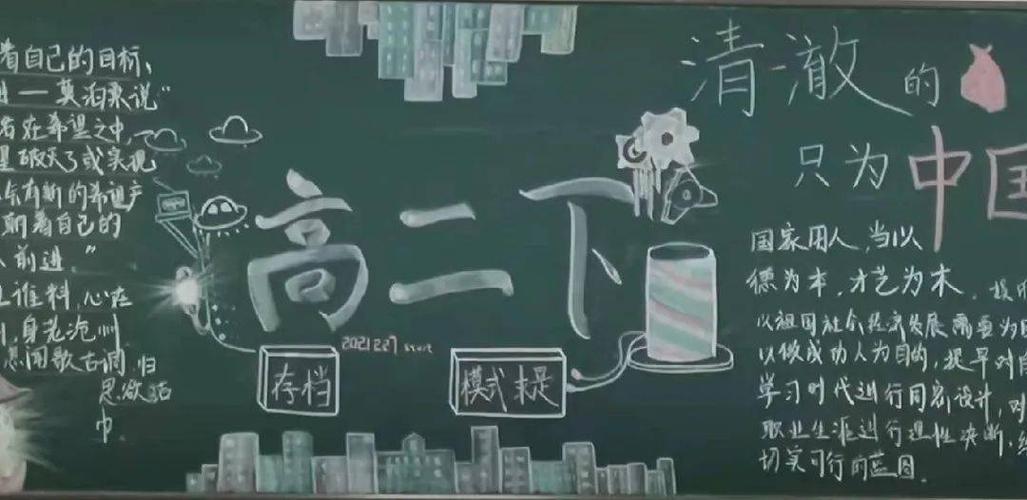 着自己的目标、
进一莫泊桑说"
活在希望之中,
望破灭了或实现
有新的希望产
朝着自己的
前进。"
谁料,心在
,身老沧州
闻歌古调,归
思欲沾
巾.
高二下
2021.2.27 start
存档
模式
清澈的
只为中国
国家用人,当以
德为本,才艺为木.
以祖国社会经济发展需要为
以做成功人为目的,提早对
学习时代进行同步设计,对
职业生涯进行理性决断.
切实可行的蓝图.